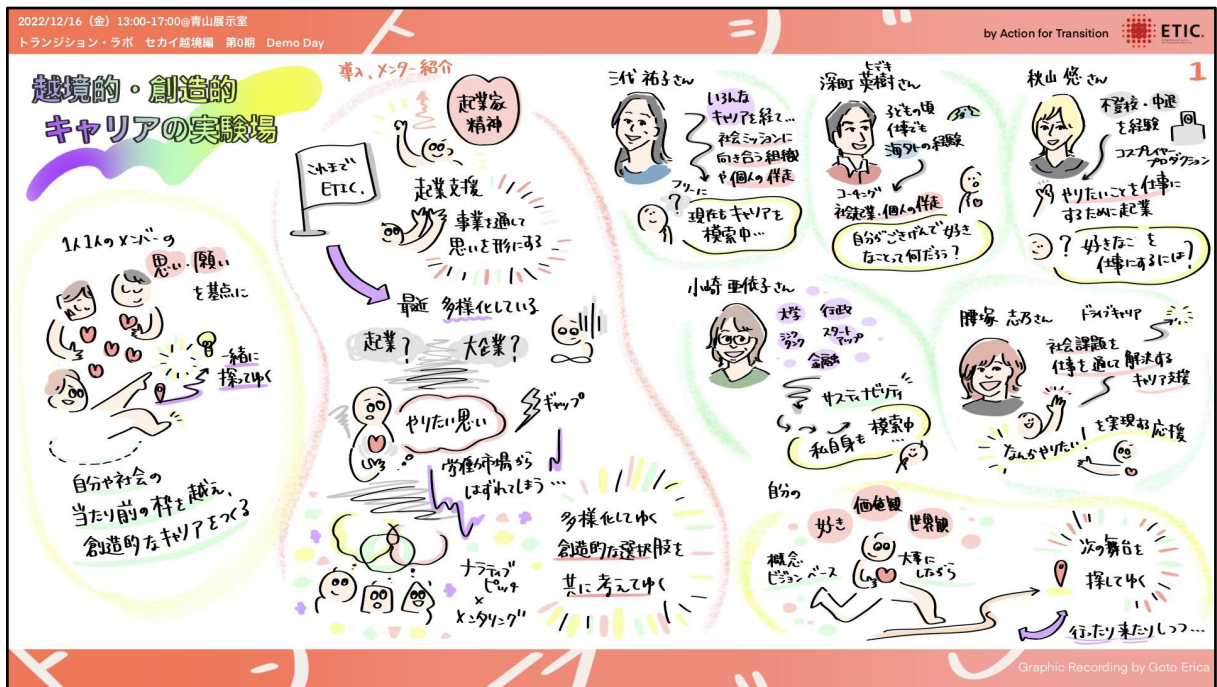 2022/12/16（金）13:00-17:00@青山展示室
トランジション・ラボ　セカイ越境編　第0期　Demo Day
by Action for Transition
ETIC.
1
越境的・創造的
キャリアの実験場
1人1人のメンバーの
思い・願い
を基点に
一緒に
探ってゆく
自分や社会の
当たり前の枠を越え、
創造的なキャリアをつくる
導入、メンター紹介
起業家
精神
これまで
ETIC.
起業支援
事業を通して
思いを形にする
最近 多様化している
起業？
大企業？
やりたい思い
ギャップ
労働市場から
はずれてしまう…
ナラティブ
ピッチ
×
メンタリング
多様化してゆく
創造的な選択肢を
共に考えてゆく
三代 祐子さん
いろんな
キャリアを経て…
社会ミッションに
向き合う組織
や個人の伴走
フリーに
?
現在もキャリアを
模索中…
深町 英樹さん
ひでき
子どもの頃
仕事でも
海外の経験
コーチング
社会起業・個人の伴走
自分がごきげんで好き
なことって何だろう？
秋山 悠さん
不登校・中退
を経験
コスプレイヤー
プロダクション
やりたいことを仕事に
するために起業
? 好きなことを
仕事にするには？
小崎 亜依子さん
大学
行政
シンク
タンク
スタート
アップ
金融
サスティナビリティ
模索中
私自身も…
腰塚 志乃さん
ドライブキャリア
社会課題を
仕事を通して解決する
キャリア支援
なんかやりたい！
を実現する応援
自分の
好き
価値観
世界観
概念
ビジョンベース
大事に
しながら
次の舞台を
探してゆく
行ったり来たりしつつ…
Graphic Recording by Goto Erica